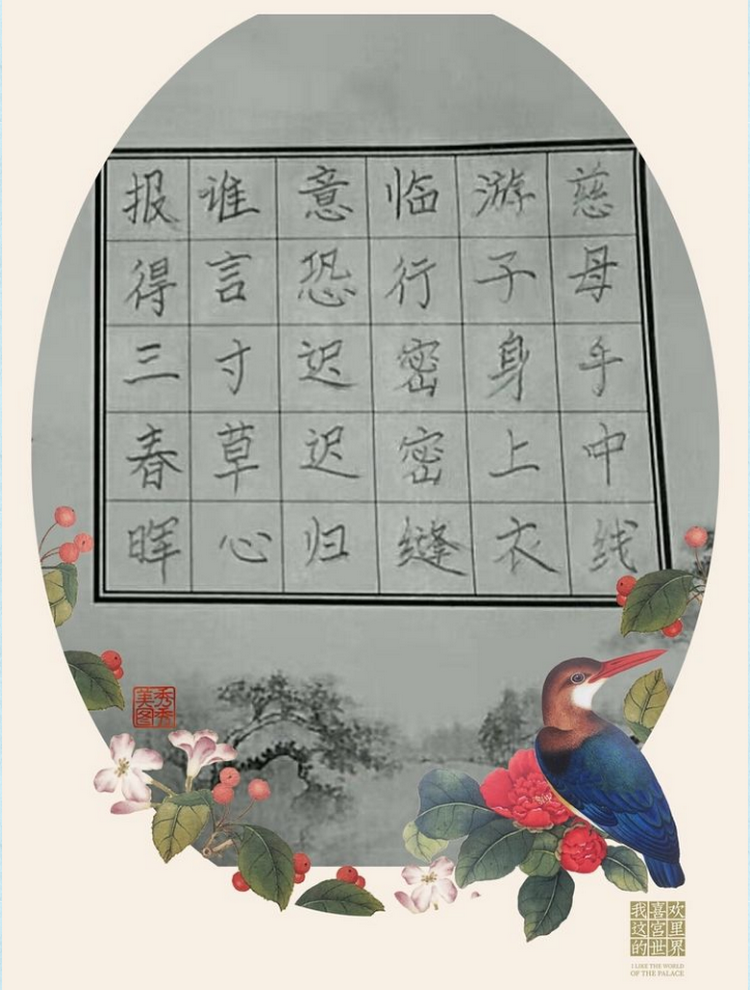 慈母手中线
游子身上衣
临行密密缝
意恐迟迟归
谁言寸草心
报得三春晖
美图
秀秀
我喜欢
这宫里
的世界
I LIKE THE WORLD
OF THE PALACE